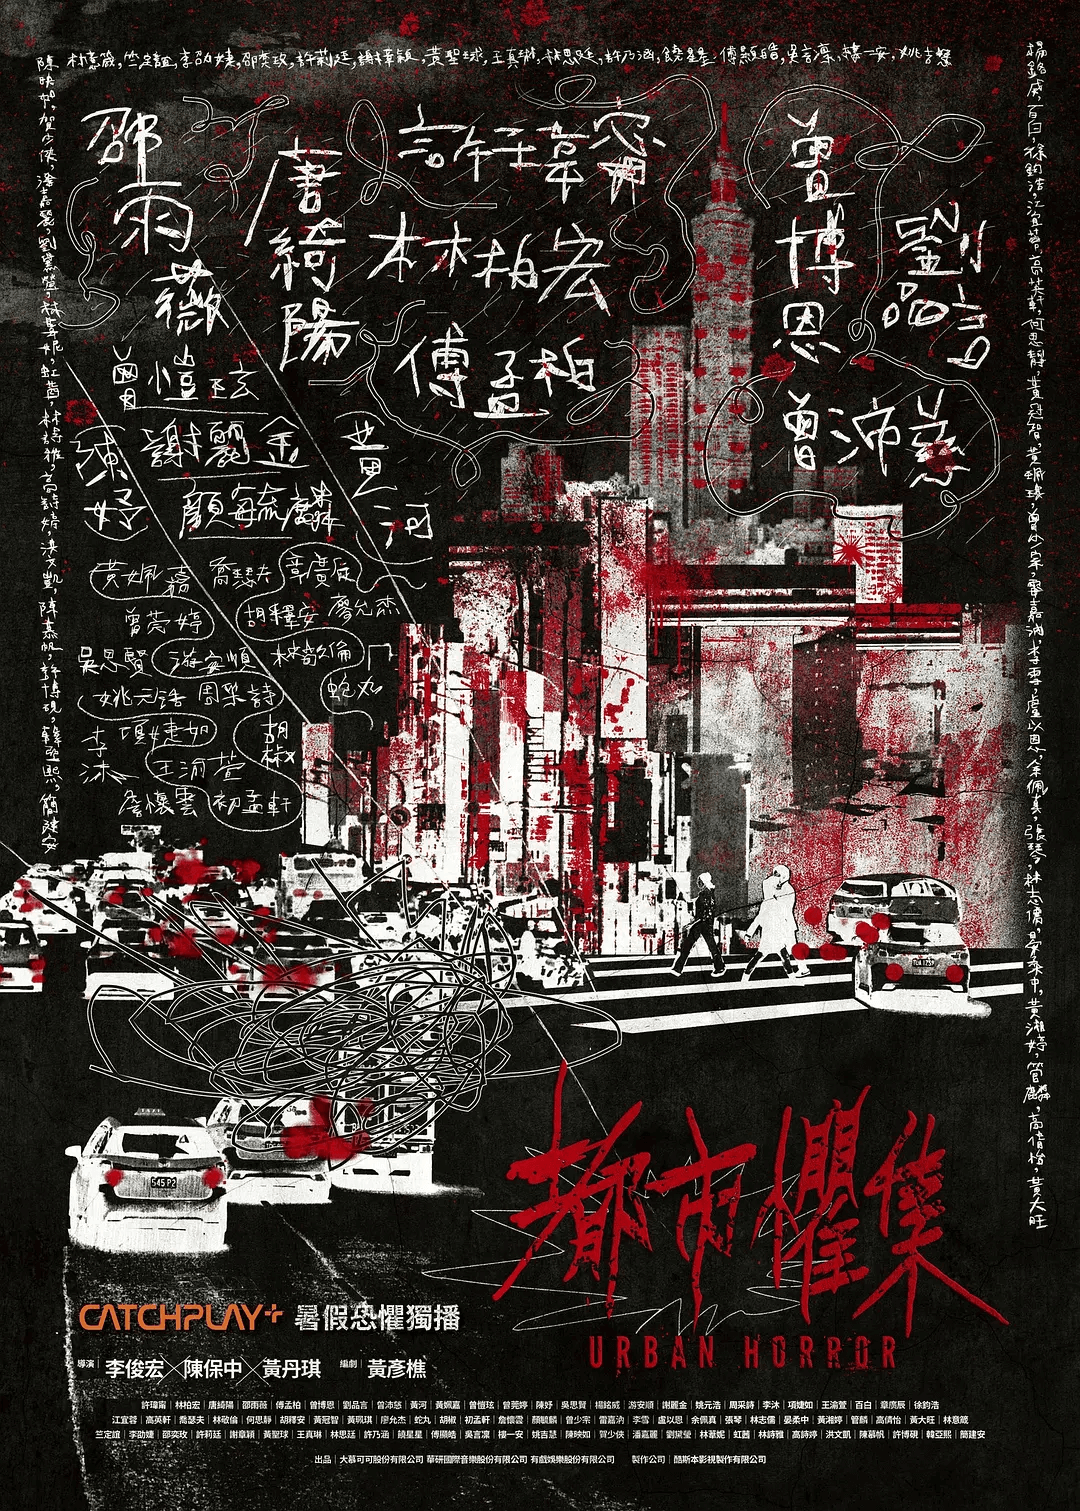 林意箴,竺定誼,李劭婕,邵奕玫,許莉廷,謝章穎,黃聖球,王真琳,林思廷,許乃涵,饒星星,傅顯皓,吳言凜,樓一安,姚吉慧
陳映如,賀少俠,潘嘉麗,劉黛瑩,林葦妮,虹茜,林詩雅,高詩婷,洪文凱,陳慕帆,許博硯,韓亞熙,簡建安
楊銘威,百白,徐鈞浩,江宜蓉,高英軒,何思靜,黃冠智,黃珮琪,曾少宗,雷嘉汭,李雪,盧以恩,余佩真,張琴,林志儒,晏柔中,黃湘婷,管麟,高倩怡,黃大旺
邵雨薇
唐綺陽
許瑋甯
林柏宏
傅孟柏
曾博恩
劉品言
曾沛慈
曾愷玹
陳妤
謝麗金
顏毓麟
黃河
黃姵嘉
喬瑟夫
章廣辰
曾莞婷
胡釋安
廖允杰
吳思賢
游安順
林敬倫
姚元浩
周采詩
蛇丸
李沐
項婕如
胡椒
王渝萱
詹懷雲
初孟軒
545 P2
都市懼集
URBAN HORROR
CATCHPLAY+ 暑假恐懼獨播
導演 | 李俊宏×陳保中×黃丹琪 編劇 | 黃彥樵
許瑋甯｜林柏宏｜唐綺陽｜邵雨薇｜傅孟柏｜曾博恩｜劉品言｜曾沛慈｜黃河｜黃姵嘉｜曾愷玹｜曾莞婷｜陳妤｜吳思賢｜楊銘威｜游安順｜謝麗金｜姚元浩｜周采詩｜李沐｜項婕如｜王渝萱｜百白｜章廣辰｜徐鈞浩
江宜蓉｜高英軒｜喬瑟夫｜林敬倫｜何思靜｜胡釋安｜黃冠智｜黃珮琪｜廖允杰｜蛇丸｜胡椒｜初孟軒｜詹懷雲｜顏毓麟｜曾少宗｜雷嘉汭｜李雪｜盧以恩｜余佩真｜張琴｜林志儒｜晏柔中｜黃湘婷｜管麟｜高倩怡｜黃大旺｜林意箴
竺定誼｜李劭婕｜邵奕玫｜許莉廷｜謝章穎｜黃聖球｜王真琳｜林思廷｜許乃涵｜饒星星｜傅顯皓｜吳言凜｜樓一安｜姚吉慧｜陳映如｜賀少俠｜潘嘉麗｜劉黛瑩｜林葦妮｜虹茜｜林詩雅｜高詩婷｜洪文凱｜陳慕帆｜許博硯｜韓亞熙｜簡建安
出品｜大慕可可股份有限公司 華研國際音樂股份有限公司 有戲娛樂股份有限公司 製作公司｜酷斯本影視製作有限公司